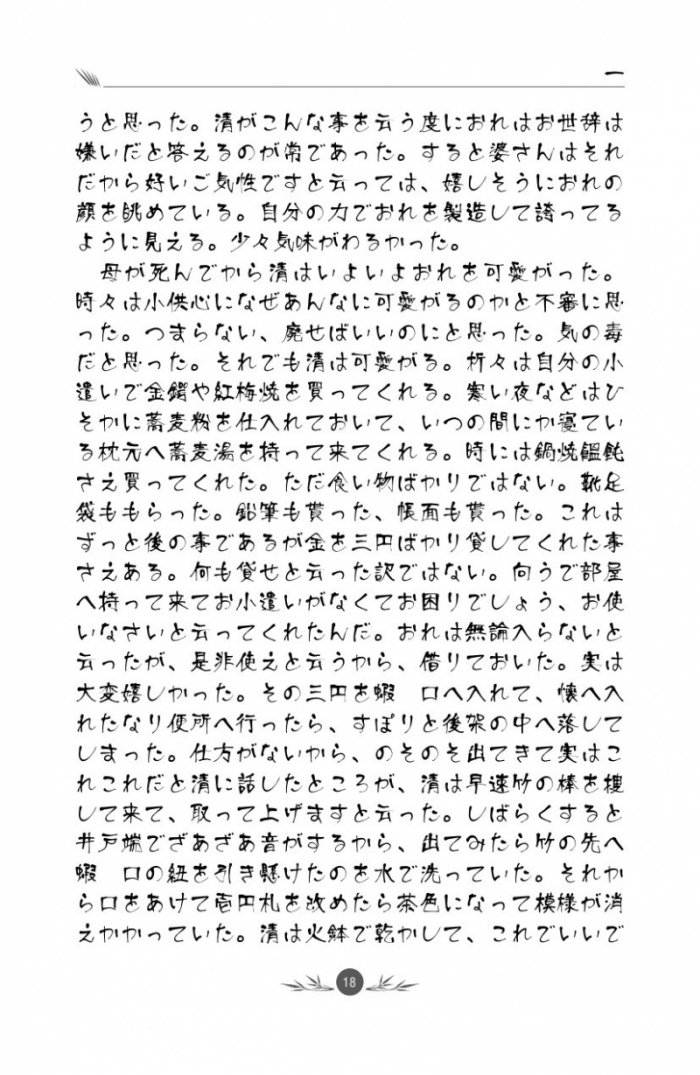 一
うと思った。清がこんな事を云う度におれはお世辞は
嫌いだと答えるのが常であった。すると婆さんはそれ
だから好いご気性ですと云っては、嬉しそうにおれの
顔を眺めている。自分の力でおれを製造して誇ってる
ように見える。少々気味がわるかった。
母が死んでから清はいよいよおれを可愛がった。
時々は小供心になぜあんなに可愛がるのかと不審に思
った。つまらない、廃せばいいのにと思った。気の毒
だと思った。それでも清は可愛がる。折々は自分の小
遣いで金鍔や紅梅焼を買ってくれる。寒い夜などはひ
そかに蕎麦粉を仕入れておいて、いつの間にか寝てい
る枕元へ蕎麦湯を持って来てくれる。時には鍋焼饂飩
さえ買ってくれた。ただ食い物ばかりではない。靴足
袋ももらった。鉛筆も貰った、帳面も貰った。これは
ずっと後の事であるが金を三円ばかり貸してくれた事
さえある。何も貸せと云った訳ではない。向うで部屋
へ持って来てお小遣いがなくてお困りでしょう、お使
いなさいと云ってくれたんだ。おれは無論入らないと
云ったが、是非使えと云うから、借りておいた。実は
大変嬉しかった。その三円を蝦　口へ入れて、懐へ入
れたなり便所へ行ったら、すぽりと後架の中へ落して
しまった。仕方がないから、のそのそ出てきて実はこ
れこれだと清に話したところが、清は早速竹の棒を捜
して来て、取って上げますと云った。しばらくすると
井戸端でざあざあ音がするから、出てみたら竹の先へ
蝦　口の紐を引き懸けたのを水で洗っていた。それか
ら口をあけて壱円札を改めたら茶色になって模様が消
えかかっていた。清は火鉢で乾かして、これでいいで
18